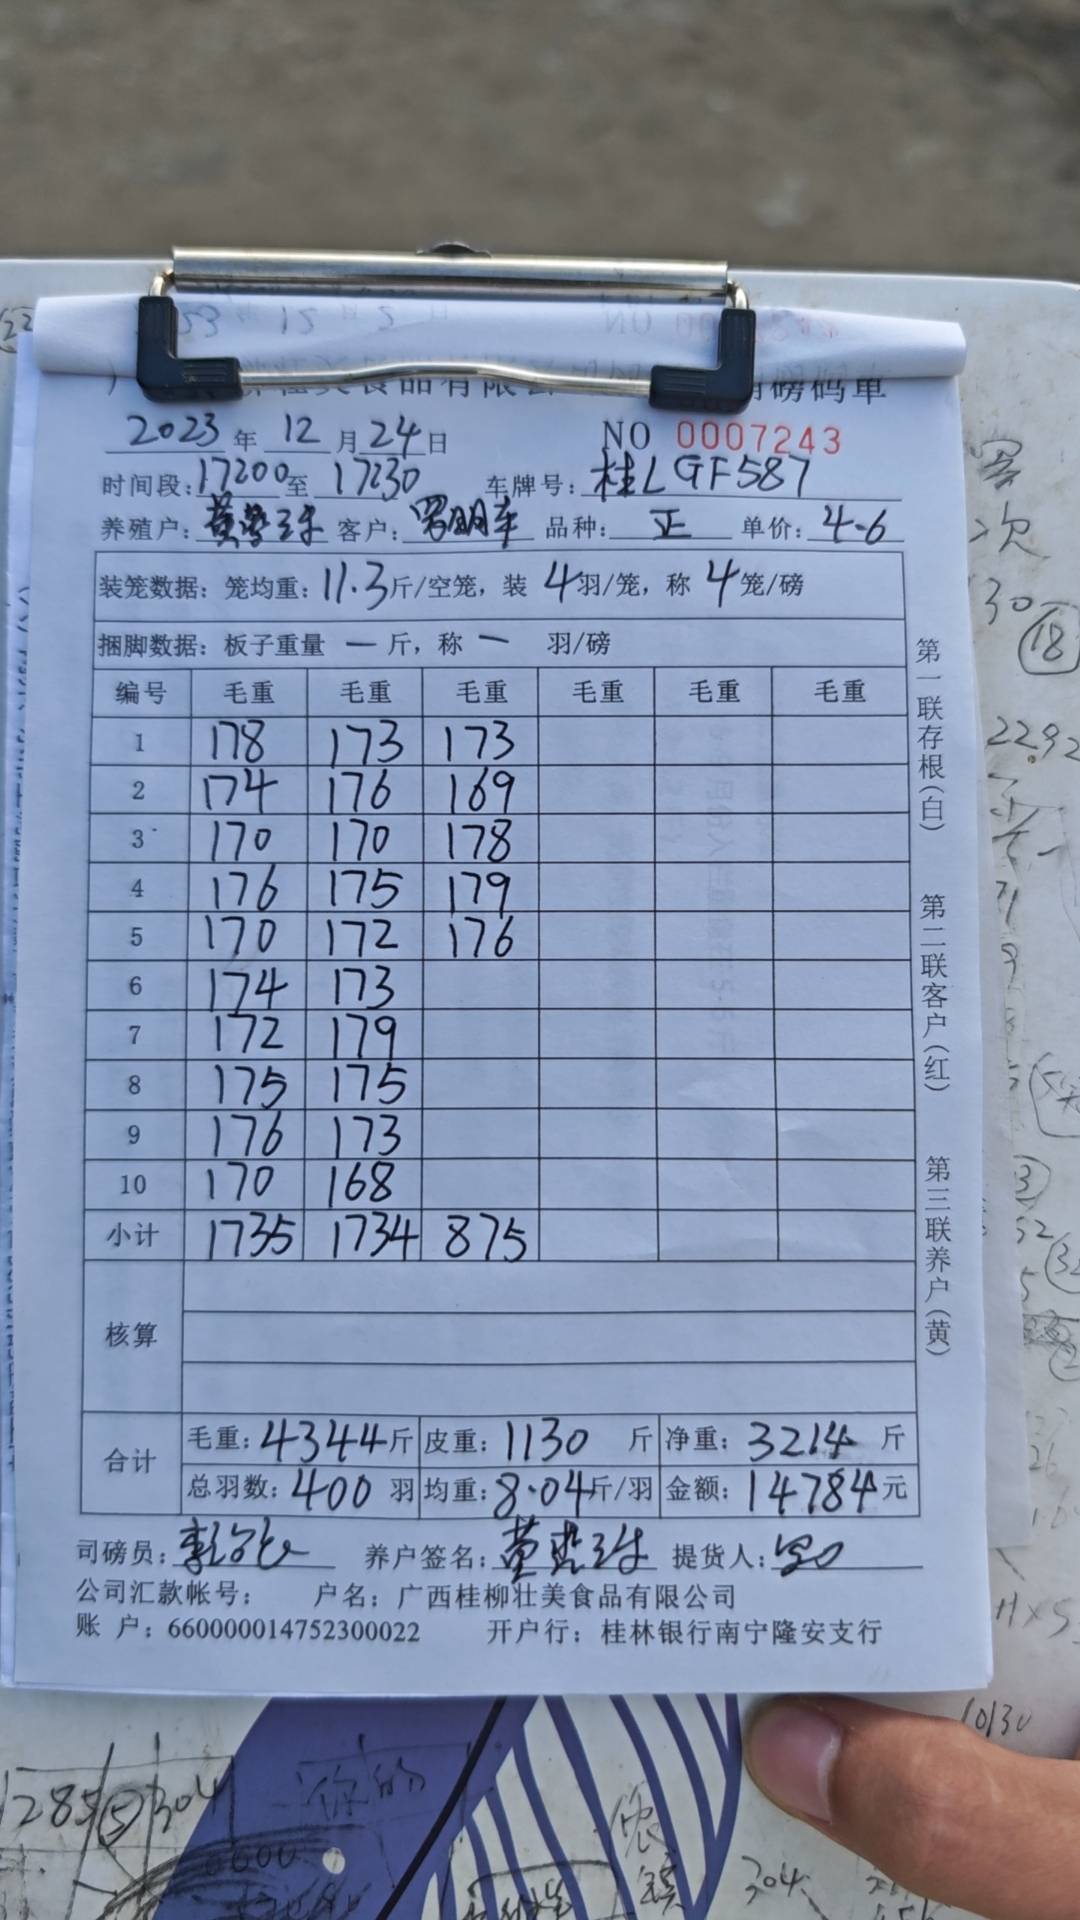 食品有限公
磅码单
2023年12月24日 NO 0007243
时间段:17200至17230 车牌号:桂LGF587
养殖户: 客户: 品种:正 单价:4.6
装笼数据:笼均重:11.3斤/空笼,装4羽/笼,称4笼/磅
捆脚数据:板子重量 一斤,称一 羽/磅
编号 毛重 毛重 毛重 毛重 毛重 毛重
1 178 173 173
2 174 176 169
3 170 170 178
4 176 175 179
5 170 172 176
6 174 173
7 172 179
8 175 175
9 176 173
10 170 168
小计 1735 1734 875
核算
合计 毛重:4344斤 皮重:1130斤 净重:3214斤
总羽数:400羽 均重:8.04斤/羽 金额:14784元
司磅员: 养户签名: 提货人:
公司汇款帐号: 户名:广西桂柳壮美食品有限公司
账 户:660000014752300022 开户行:桂林银行南宁隆安支行
第一联存根(白) 第二联客户(红) 第三联养户(黄)
客
次
30 18
22.92
10130
1285 5 304
你的
304